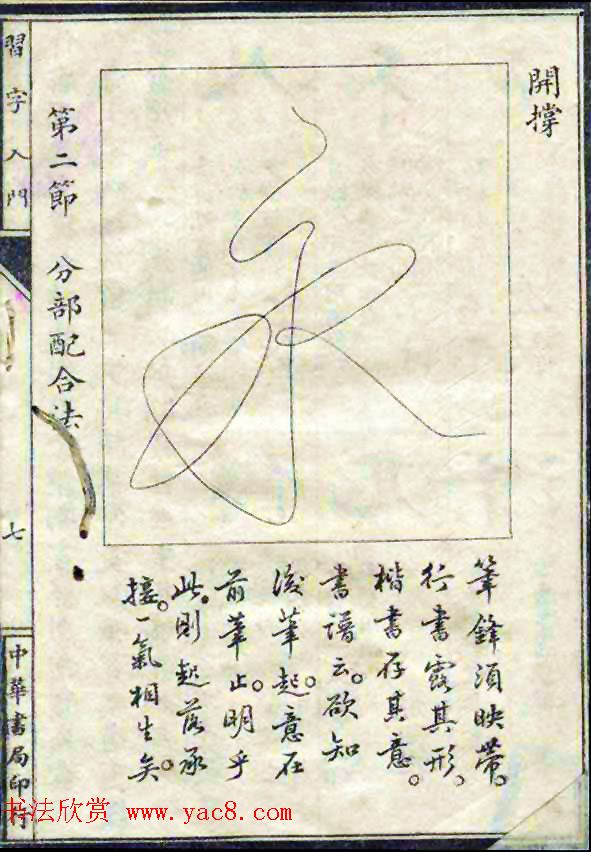 開撐
筆鋒須映帶。
行書露其形。
楷書存其意。
書譜云。欲知
後筆起。意在
前筆止。明乎
此。則起落承
接。一氣相生矣。
第二節 分部配合法
習字入門
七
中華書局印行
书法欣赏 www.yac8.com